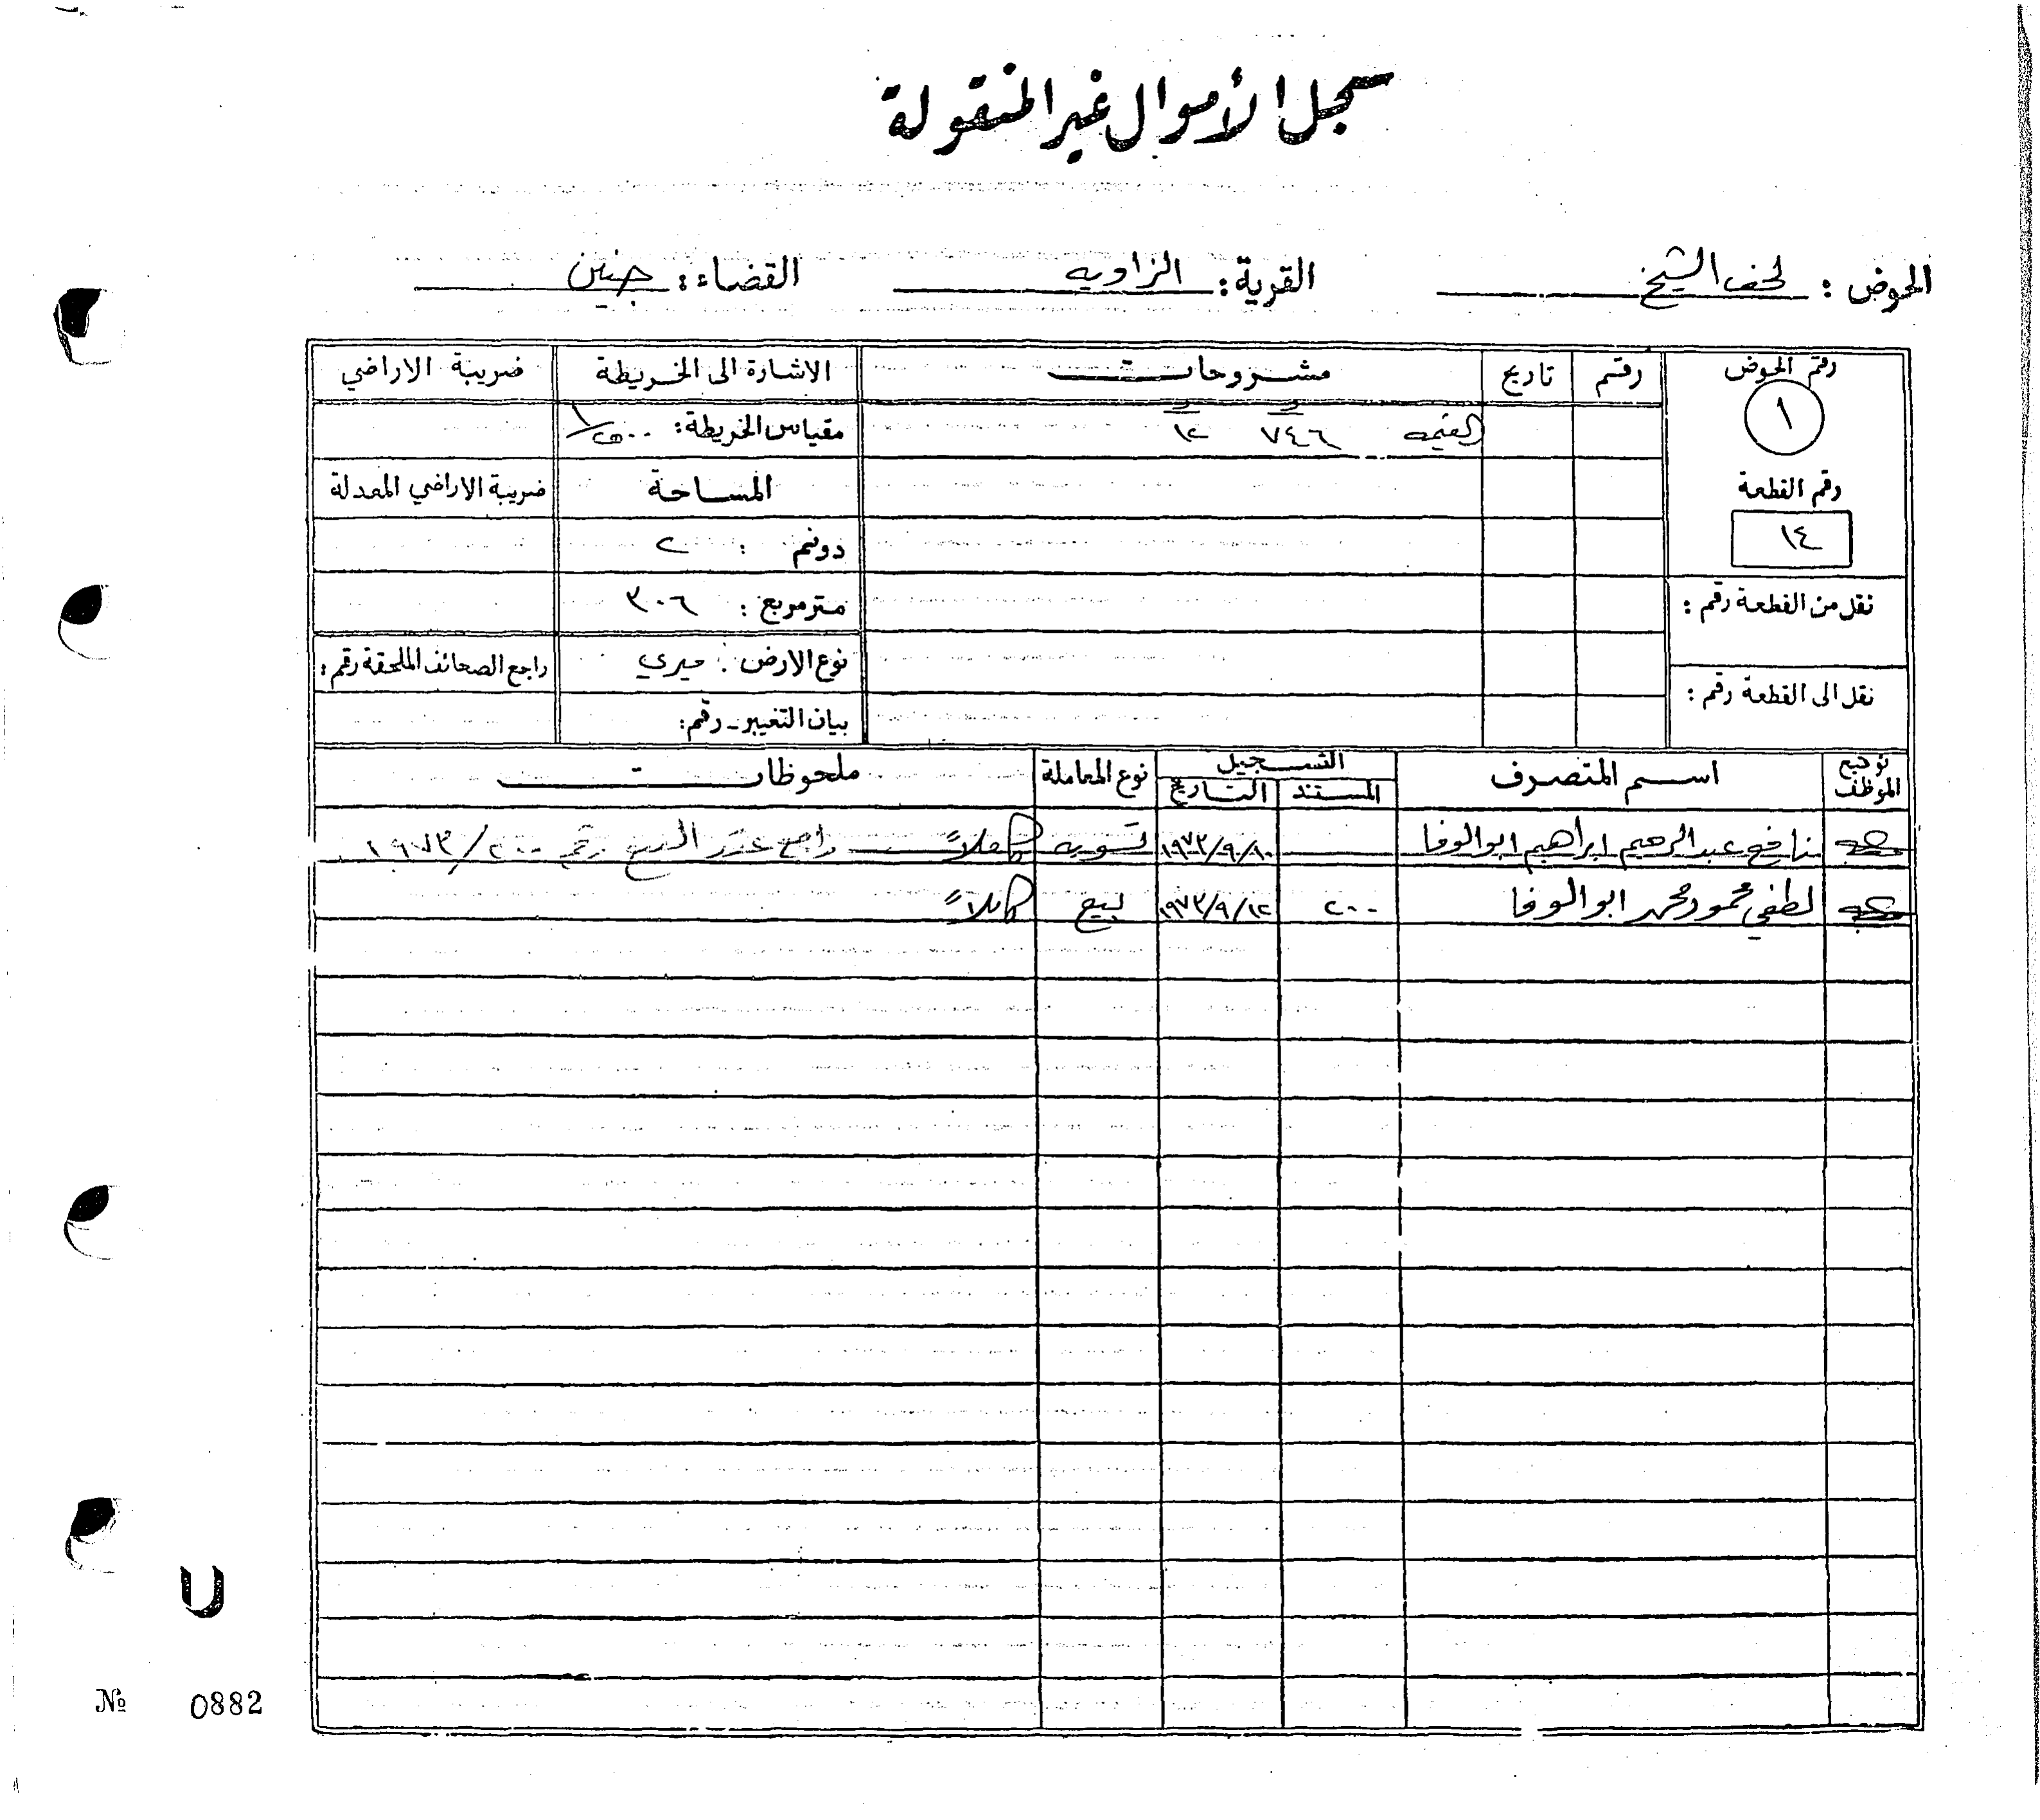 سجل الأموال غير المنقولة
الحوض : لحف الشيخ القرية : الزاويه القضاء : جنين
رقم الحوض رقم تاريخ مشروحات الاشارة الى الخريطة ضريبة الاراضي
١ القيمه ٧٤٦ ١٢ مقياس الخريطة : ١/٢٥٠٠
رقم القطعة المساحة ضريبة الاراضي المعدلة
١٤ دونم : ٢
نقل من القطعة رقم : متر مربع : ٣٠٦
نوع الارض : ميري راجع الصحائف الملحقة رقم :
نقل الى القطعة رقم : بيان التغيير - رقم :
توقيع الموظف اسم المتصرف التسجيل نوع المعاملة ملحوظات
المستند التاريخ
نافع عبد الرحيم ابراهيم ابو الوفا ١٩٧٣/٩/١٠ تسويه كاملاً راجع عقد البيع رقم ١٩٧٣/٢٠٠
لطفي محمود محمد ابو الوفا ٢٠٠ ١٩٧٣/٩/١٢ بيع كاملاً
U
№ 0882